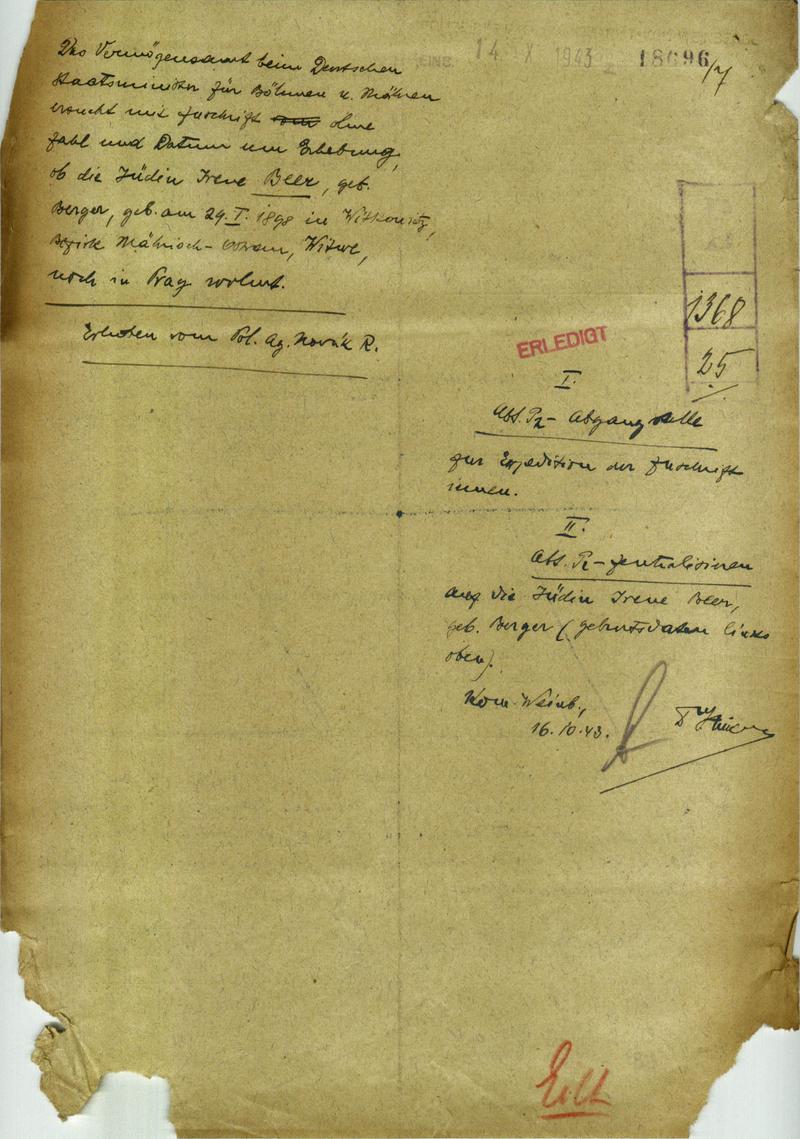 EING. 14 X 1943 18696/7
Das Vermögensamt beim Deutschen
Staatsminister für Böhmen u. Mähren
ersucht mit Zuschrift vom ohne
Zahl und Datum um Erhebung,
ob die Jüdin Irene Beer, geb.
Berger, geb. am 29.I.1898 in Witkowitz,
Bezirk Mährisch-Ostrau, Witwe,
noch in Prag wohnt.
Erhoben vom Pol. Ag. Novák R.
1368
25
ERLEDIGT
I.
Abt. Pr- Abgangstelle
zur Expedition der Zuschrift
innen.
II.
Abt. Pr- zentralisieren
auf die Jüdin Irene Beer,
geb. Berger (Geburtsdaten links
oben).
Kom. Weinb.,
16.10.43.
Eilt